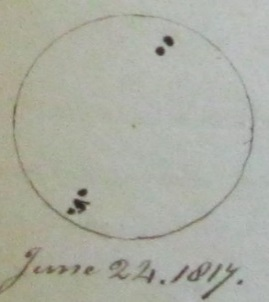 June 24. 1817.